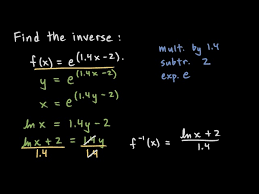 Find the inverse :
f(x) = e^(1.4x-2).
y = e^(1.4x-2)
x = e^(1.4y-2)
ln x = 1.4y-2
(ln x + 2)/1.4 = 1.4y/1.4
mult. by 1.4
subtr. 2
exp. e
f^-1(x) = (ln x + 2)/1.4